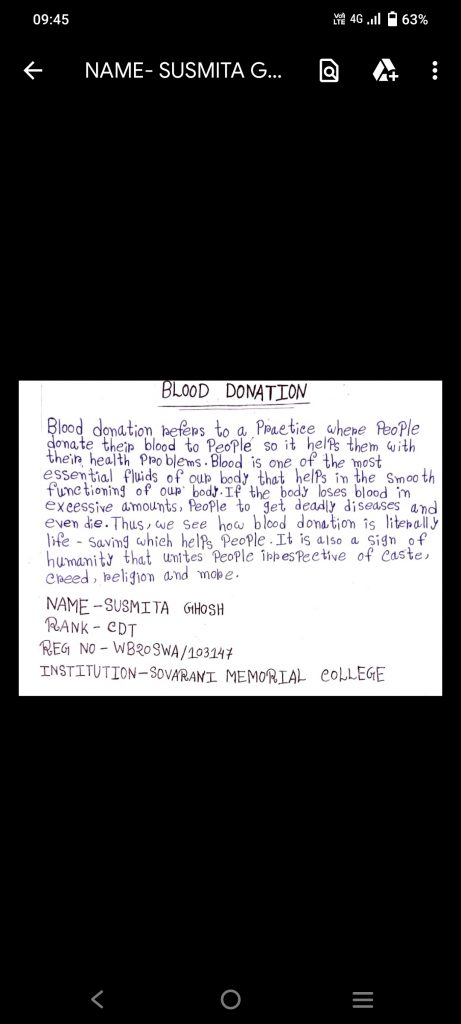 09:45
Vo) LTE 4G 63%
NAME- SUSMITA G...
BLOOD DONATION
Blood donation refers to a Practice where People
donate their blood to People so it helps them with
their health Problems. Blood is one of the most
essential fluids of our body that helps in the smooth
functioning of our body. If the body loses blood in
excessive amounts, People to get deadly diseases and
even die. Thus, we see how blood donation is literally
life - saving which helps People. It is also a sign of
humanity that unites People irrespective of caste,
creed, religion and more.
NAME - SUSMITA GHOSH
RANK - CDT
REG NO - WB20SWA/103147
INSTITUTION - SOVARANI MEMORIAL COLLEGE